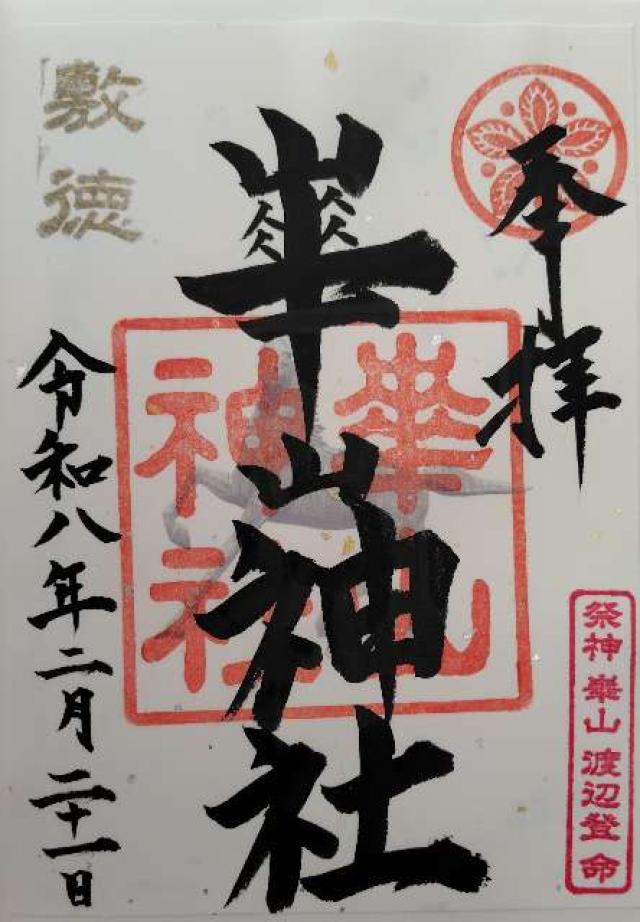 奉拝
崋山神社
崋山神社
祭神 崋山 渡辺登命
敷徳
令和八年二月二十一日